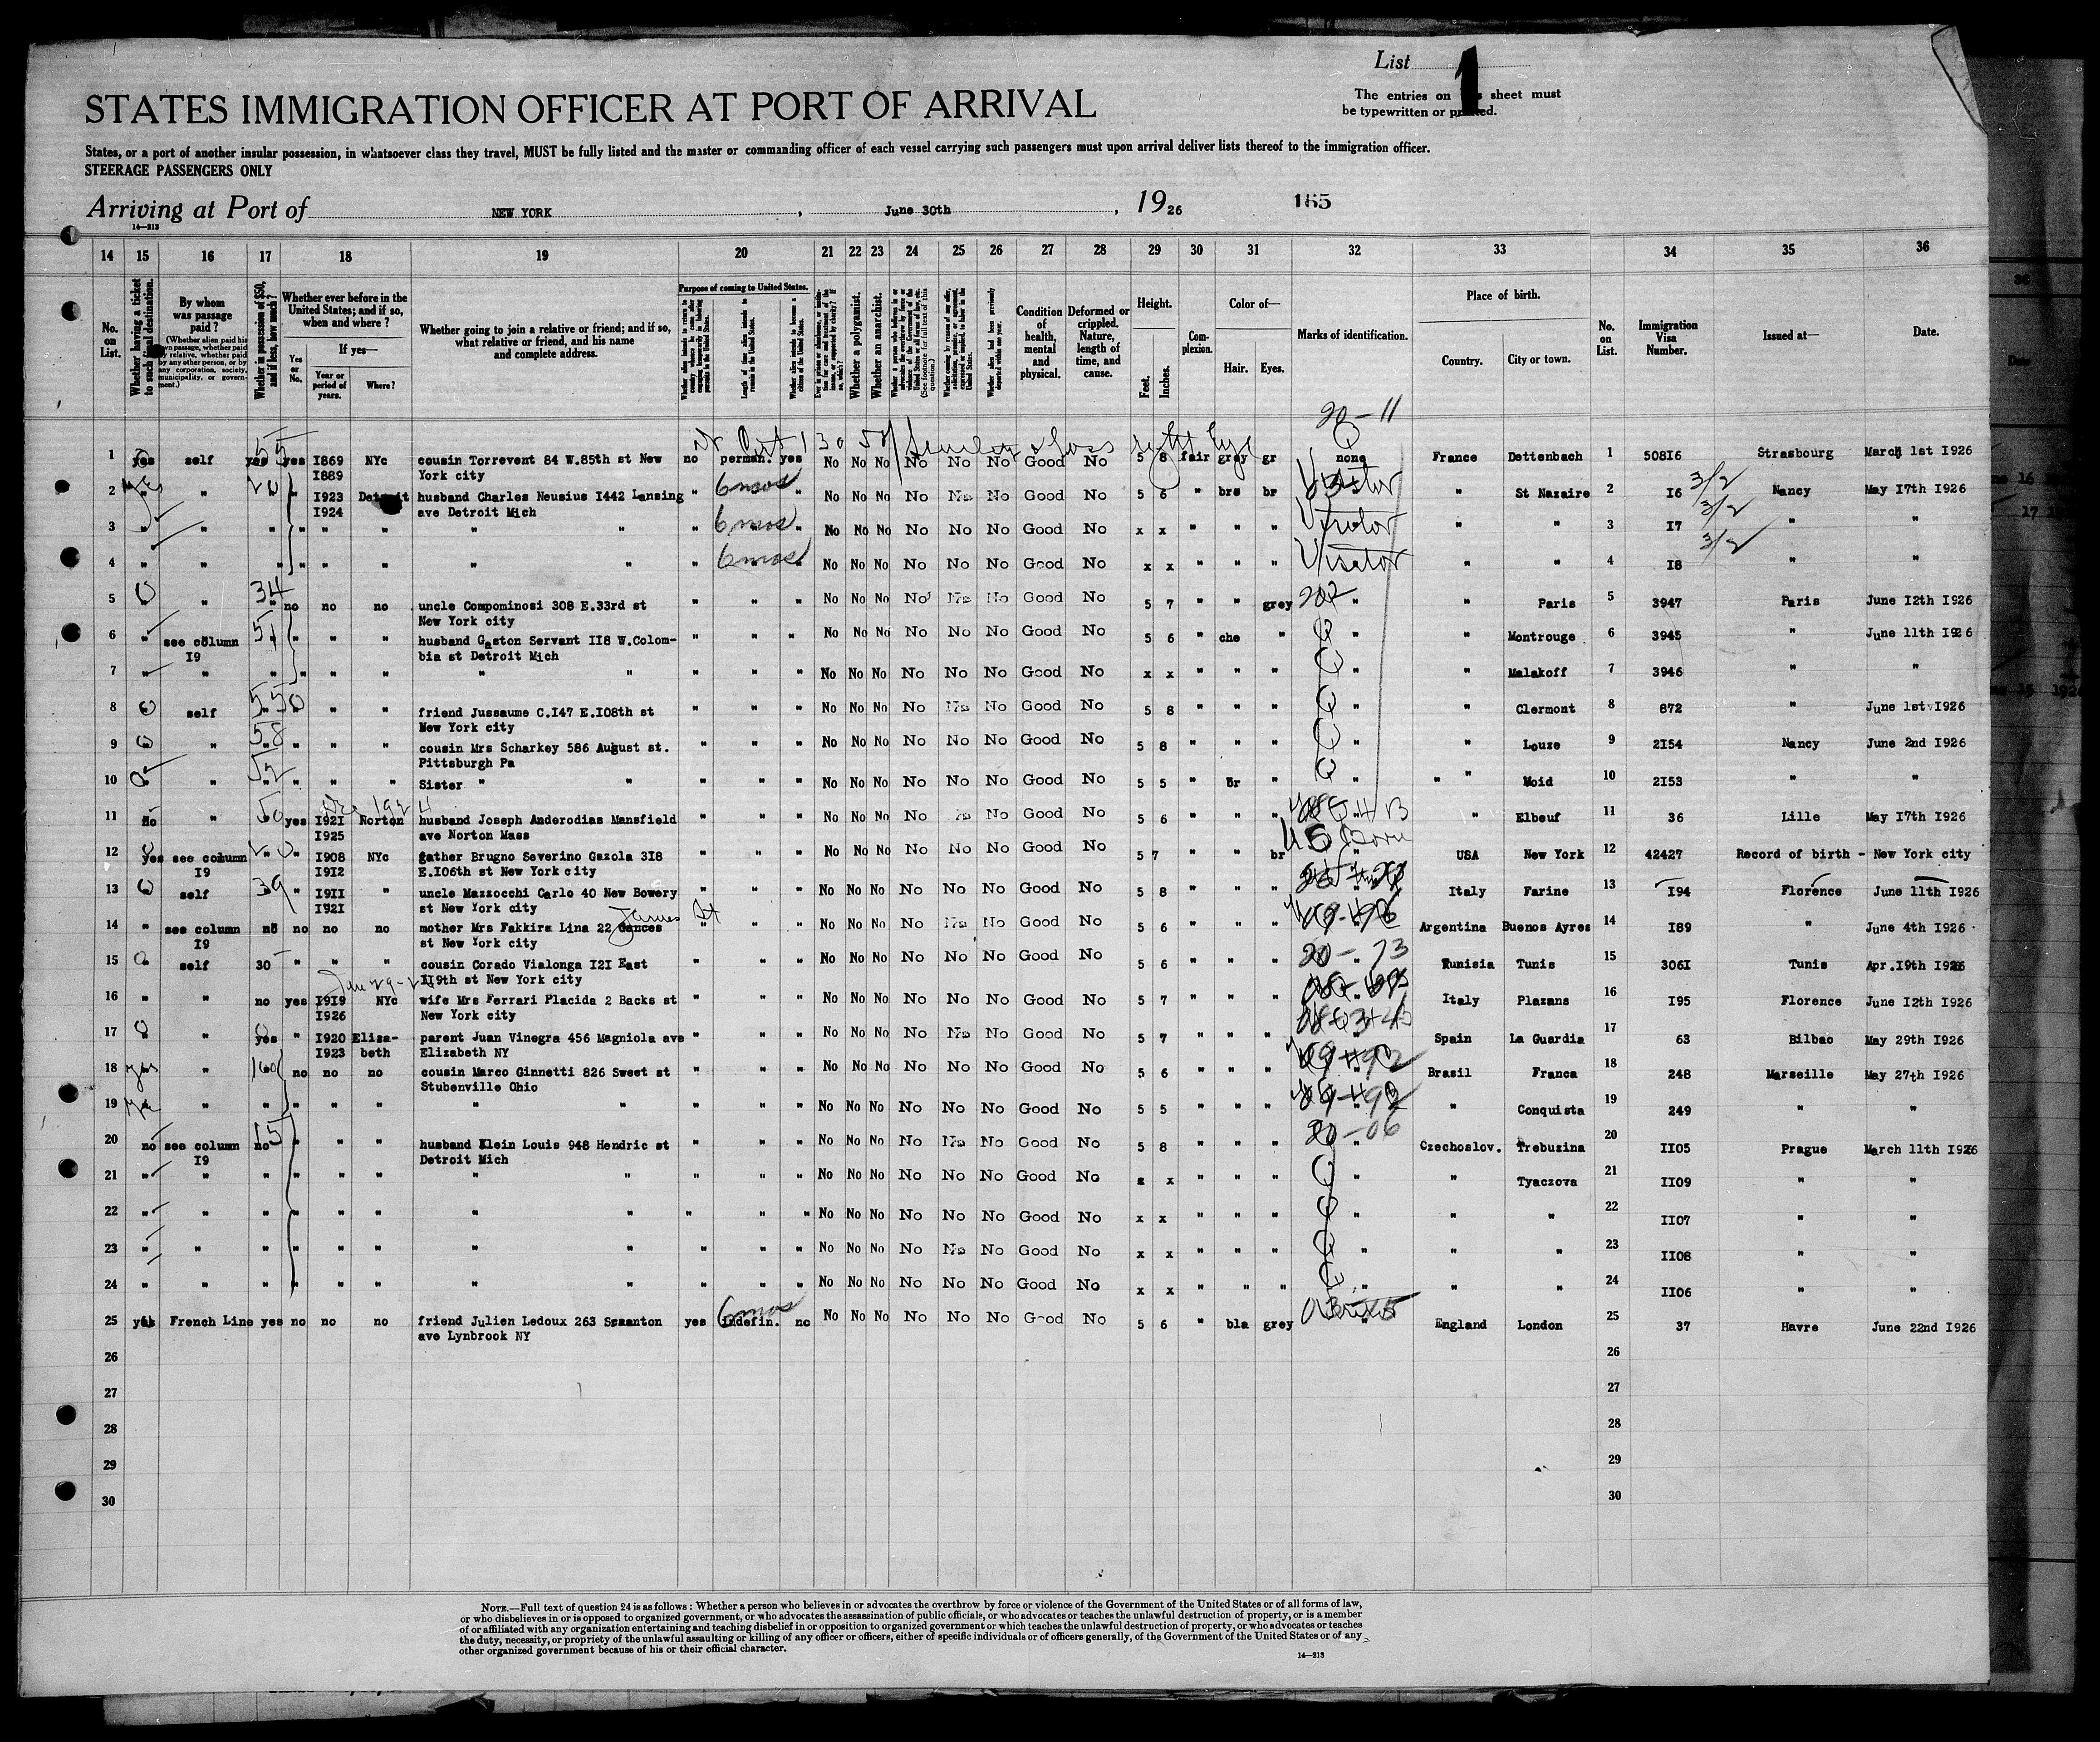 List 1
The entries on sheet must
be typewritten or printed.
STATES IMMIGRATION OFFICER AT PORT OF ARRIVAL
States, or a port of another insular possession, in whatsoever class they travel, MUST be fully listed and the master or commanding officer of each vessel carrying such passengers must upon arrival deliver lists thereof to the immigration officer.
STEERAGE PASSENGERS ONLY
Arriving at Port of NEW YORK, June 30th, 1926 165
14—213
14 15 16 17 18 19 20 21 22 23 24 25 26 27 28 29 30 31 32 33 34 35 36
No. on List.
Whether having a ticket to such final destination.
By whom was passage paid?
(Whether alien paid his own passage, whether paid by relative, whether paid by any other person, or by any corporation, society, municipality, or government.)
Whether in possession of $50, and if less, how much?
Whether ever before in the United States; and if so, when and where?
Yes or No.
If yes—
Year or period of years.
Where?
Whether going to join a relative or friend; and if so, what relative or friend, and his name and complete address.
Purpose of coming to United States.
Length of time alien intends to remain in the United States.
Whether alien intends to become a citizen of the United States.
Whether a polygamist.
Whether an anarchist.
Condition of health, mental and physical.
Deformed or crippled. Nature, length of time, and cause.
Height.
Feet. Inches.
Complexion.
Color of—
Hair. Eyes.
Marks of identification.
Place of birth.
Country. City or town.
No. on List.
Immigration Visa Number.
Issued at—
Date.
20-11
1 yes self yes yes I869 NYc cousin Torrevent 84 W.85th st New no perman. yes No No No No No No Good No 5 8 fair grey gr none France Dettenbach 1 508I6 Strasbourg March 1st I926
I889 York city
2 " " " I923 Detroit husband Charles Neusius I442 Lansing " 6 mos " No No No No No No Good No 5 6 " bro br Visitor " St Nazaire 2 I6 3/2 Nancy May I7th I926
I924 ave Detroit Mich
3 " " " " " " " " " 6 mos " No No No No No No Good No x x " " " Visitor " " 3 I7 3/2 " "
4 " " " " " " " " " 6 mos " No No No No No No Good No x x " " " Visitor " " 4 I8 3/2 " "
5 " " 34 no no no uncle Compominosi 308 E.33rd st " " " No No No No No No Good No 5 7 " " grey 202 " " Paris 5 3947 Paris June I2th I926
New York city
6 " see column 51 " " " husband Gaston Servant II8 W.Colom- " " " No No No No No No Good No 5 6 " che " " " Montrouge 6 3945 " June 11th I926
I9 bia st Detroit Mich
7 " " " " " " " " " " " No No No No No No Good No x x " " " " " Malakoff 7 3946 " "
8 " self 550 " " " friend Jussaume C.I47 E.I08th st " " " No No No No No No Good No 5 8 " " " " " Clermont 8 872 " June 1st I926
New York city
9 " " 58 " " " cousin Mrs Scharkey 586 August st. " " " No No No No No No Good No 5 8 " " " " " Louze 9 2I54 Nancy June 2nd I926
Pittsburgh Pa
10 " " 52 " " " Sister " " " " " No No No No No No Good No 5 5 " br " " " " Moid 10 2I53 " "
11 no " 50 yes I92I Norton husband Joseph Anderodias Mansfield " " " No No No No No Good No 5 6 " " " " Elbeuf 11 36 Lille May I7th I926
I925 ave Norton Mass
12 yes see column " " I908 NYc gather Brugno Severino Gazola 3I8 " " " No No No No No No Good No 5 7 " " br US Born USA New York 12 42427 Record of birth - New York city
I9 I9I2 E.I06th st New York city
13 " self 39 " I9II " uncle Mazzocchi Carlo 40 New Bowery " " " No No No No No No Good No 5 8 " " " Italy Farine 13 I94 Florence June 11th I926
I92I st New York city
14 " see column no no no no mother Mrs Fakkira Lina 22 James St " " " No No No No No No Good No 5 6 " " " Argentina Buenos Ayres 14 I89 " June 4th I926
I9 st New York city
15 " self 30 " " " cousin Corado Vialonga I2I East " " " No No No No No No Good No 5 6 " " " 20-73 Tunisia Tunis 15 306I Tunis Apr.I9th I926
II9th st New York city
16 " " no yes I9I9 NYc wife Mrs Ferrari Placida 2 Backs st " " " No No No No No No Good No 5 7 " " " Italy Plazans 16 I95 Florence June I2th I926
I926 New York city
17 " " yes " I920 Eliza- parent Juan Vinegra 456 Magniola ave " " " No No No No No No Good No 5 7 " " " Spain La Guardia 17 63 Bilbao May 29th I926
I923 beth Elizabeth NY
18 yes " 160 no no no cousin Marco Ginnetti 826 Sweet st " " " No No No No No No Good No 5 6 " " " Brasil Franca 18 248 Marseille May 27th I926
Stubenville Ohio
19 " " " " " " " " " " " No No No No No No Good No 5 5 " " " " Conquista 19 249 " "
20 no see column no 15 " " " husband Klein Louis 948 Hendric st " " " No No No No No No Good No 5 8 " " " 20-06 Czechoslov. Trebuzina 20 II05 Prague March 11th I926
I9 Detroit Mich
21 " " " " " " " " " " " No No No No No No Good No x x " " " " " Tyaczova 21 II09 " "
22 " " " " " " " " " " " No No No No No No Good No x x " " " " " " 22 II07 " "
23 " " " " " " " " " " " No No No No No No Good No x x " " " " " " 23 II08 " "
24 " " " " " " " " " " " No No No No No No Good No x x " " " " " " 24 II06 " "
25 French Line yes no no no friend Julien Ledoux 263 Scaanton yes 6 mos indefin. no No No No No No No Good No 5 6 " bla grey England London 25 37 Havre June 22nd I926
ave Lynbrook NY
26 26
27 27
28 28
29 29
30 30
NOTE.—Full text of question 24 is as follows: Whether a person who believes in or advocates the overthrow by force or violence of the Government of the United States or of all forms of law,
or who disbelieves in or is opposed to organized government, or who advocates the assassination of public officials, or who advocates or teaches the unlawful destruction of property, or is a member
of or affiliated with any organization entertaining and teaching disbelief in or opposition to organized government or which teaches the unlawful destruction of property, or who advocates or teaches
the duty, necessity, or propriety of the unlawful assaulting or killing of any officer or officers, either of specific individuals or of officers generally, of the Government of the United States or of any
other organized government because of his or their official character.
14—213